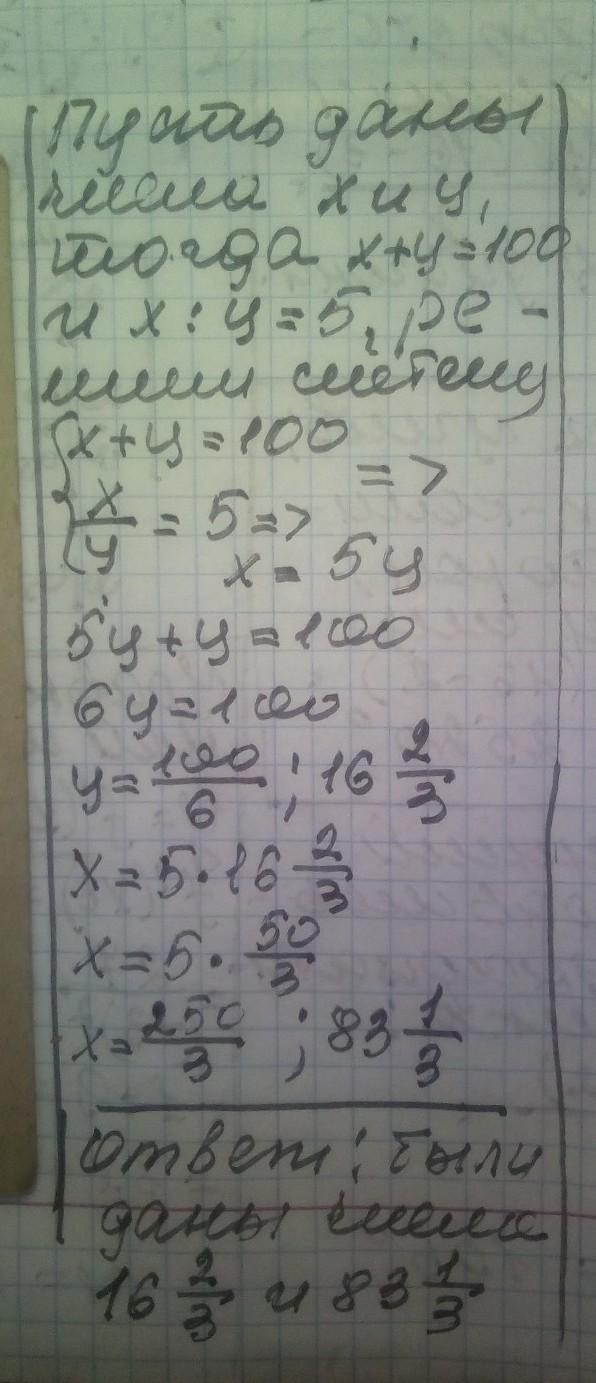 Пусть даны
числа х и у,
тогда х+у=100
и х:у=5, ре-
шим систему
{х+у=100
=>
{х/у = 5=>
х= 5у
5у+у=100
6у=100
у=100/6 ; 16 2/3
х=5·16 2/3
х=5· 50/3
х=250/3 ; 83 1/3
Ответ: были
даны числа
16 2/3 и 83 1/3